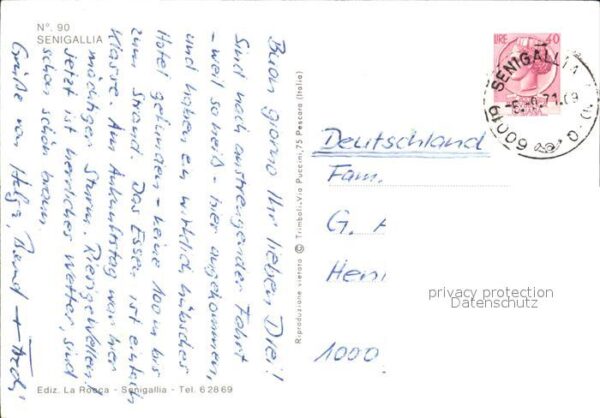 N°. 90
SENIGALLIA
Buon giorno Ihr lieben Drei!
Sind nach anstrengender Fahrt
- weil so heiß - hier angekommen,
und haben ein wirklich hübsches
Hotel gefunden - keine 100 m bis
zum Strand. Das Essen ist einfach
Klasse. Am Ankunftstag war hier
mächtiger Sturm. Riesige Wellen!
Jetzt ist herrliches Wetter, sind
schon schön braun.
Grüße von Helga, Bernd +
Ediz. La Rocca - Senigallia - Tel. 62869
Riproduzione vietata © Trimboli, Via Puccini, 75 Pescara (Italia)
LIRE 40
60019 SENIGALLIA
Deutschland
Fam.
G. A
Henr
1000
privacy protection
Datenschutz